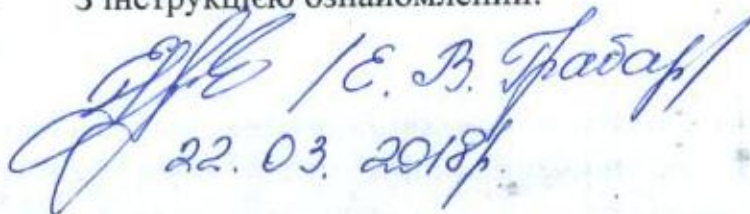 З інструкцією ознайомлений:
/Є. В. Грабар/
22. 03. 2018р.